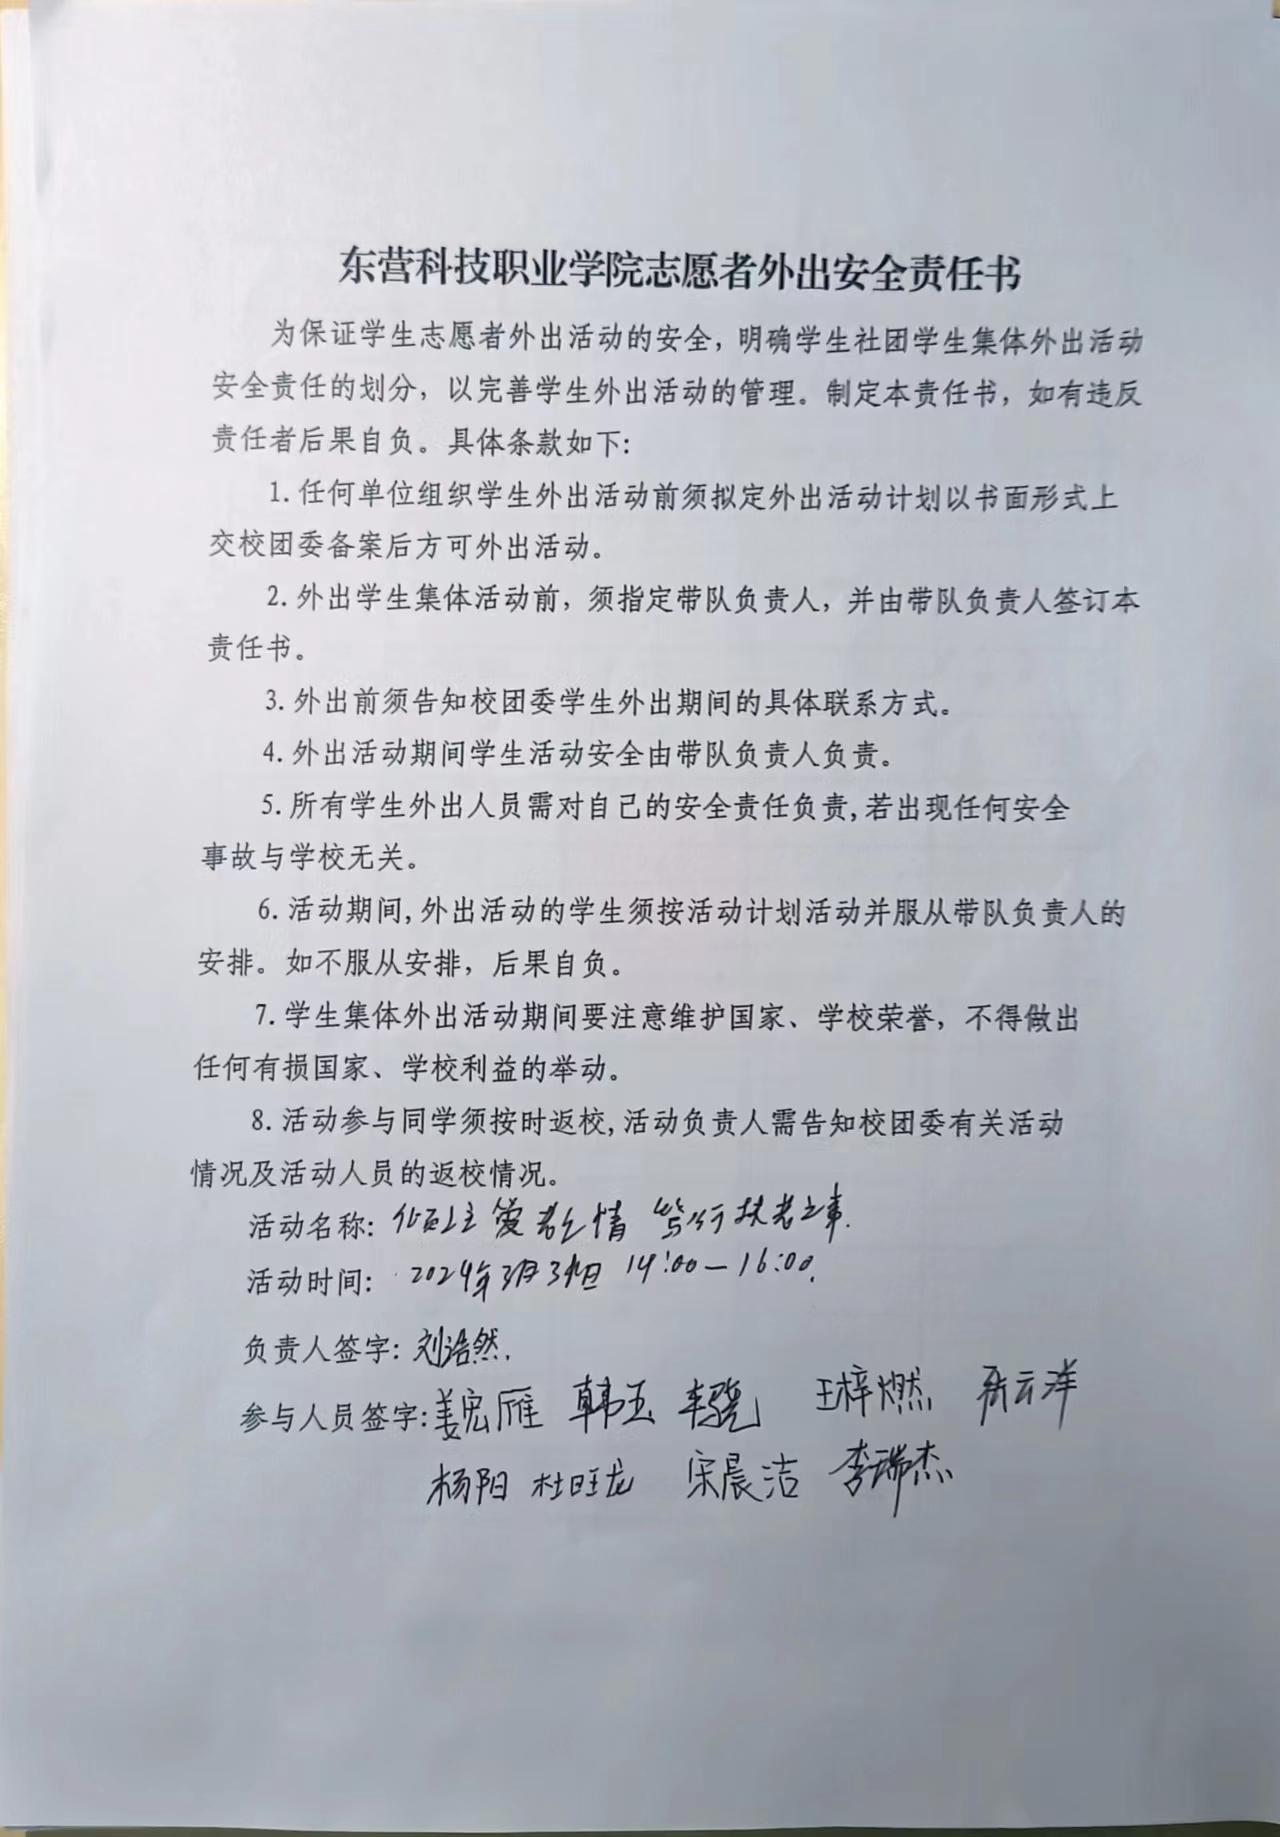 东营科技职业学院志愿者外出安全责任书
为保证学生志愿者外出活动的安全，明确学生社团学生集体外出活动
安全责任的划分，以完善学生外出活动的管理。制定本责任书，如有违反
责任者后果自负。具体条款如下:
1.任何单位组织学生外出活动前须拟定外出活动计划以书面形式上
交校团委备案后方可外出活动。
2.外出学生集体活动前，须指定带队负责人，并由带队负责人签订本
责任书。
3.外出前须告知校团委学生外出期间的具体联系方式。
4.外出活动期间学生活动安全由带队负责人负责。
5.所有学生外出人员需对自己的安全责任负责,若出现任何安全
事故与学校无关。
6.活动期间,外出活动的学生须按活动计划活动并服从带队负责人的
安排。如不服从安排，后果自负。
7.学生集体外出活动期间要注意维护国家、学校荣誉，不得做出
任何有损国家、学校利益的举动。
8.活动参与同学须按时返校,活动负责人需告知校团委有关活动
情况及活动人员的返校情况。
活动名称: 爱老之情 笃行扶老之事.
活动时间: 2024年3月31日 14:00—16:00.
负责人签字: 刘浩然.
参与人员签字: 姜宏雁 韩玉 王梓燃
杨阳 杜旺龙 宋晨洁 李瑞杰